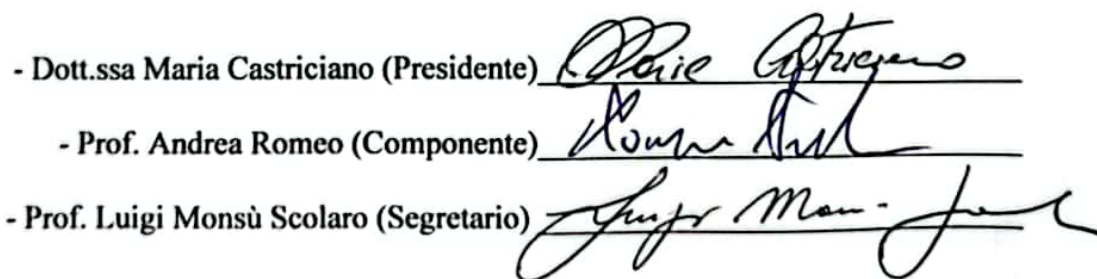 - Dott.ssa Maria Castriciano (Presidente) Maria Castriciano
- Prof. Andrea Romeo (Componente) Romeo
- Prof. Luigi Monsù Scolaro (Segretario) Luigi Mon